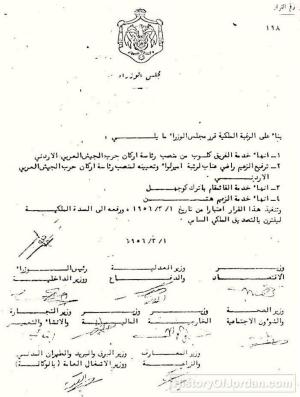 رقم القرار
١٦٨
مجلس الوزراء
بناء على الرغبة الملكية قرر مجلس الوزراء ما يلي :
١ـ انهاء خدمة الفريق كلوب من منصب رئاسة اركان حرب الجيش العربي الاردني
٢ـ ترفيع الزعيم راضي عناب لرتبة اميرلواء وتعيينه لمنصب رئاسة اركان حرب الجيش العربي
الاردني
٣ـ انهاء خدمة القائمقام باترك كوجهل
٤ـ انهاء خدمة الزعيم هتن
وتنفيذ هذا القرار اعتبارا من تاريخ ١٩٥٦/٣/١ ورفعه الى السدة الملكية
ليقترن بالتصديق الملكي السامي
١٩٥٦/٣/١
وزير وزير العدلية رئيس الوزراء
الاقتصاد والدفاع ووزير الداخلية
وزير الصحة وزير وزير وزير التجارة
والشؤون الاجتماعية الخارجية المالية والانشاء والتعمير
وزير المعارف وزير البرق والبريد والطيران المدني
والزراعة ووزير الاشغال العامة (بالوكالة)
HistoryOfJordan.com